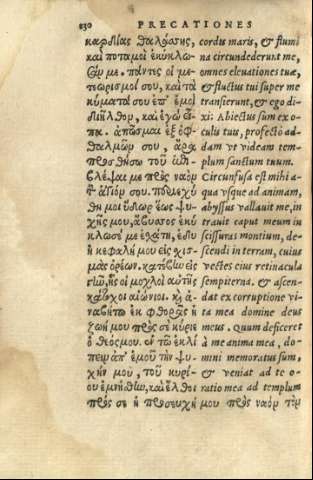 230 PRECATIONES
καρδίας θαλάσσης,
καὶ ποταμοὶ ἐκύκλω-
σάν με. πάντες οἱ με-
τεωρισμοί σου, καὶ τὰ
κύματά σου ἐπ' ἐμοὶ
διῆλθον, καὶ ἐγὼ εἶ-
πα. ἀπῶσμαι ἐξ ὀφ-
θαλμῶν σου, ἆρα
προσθήσω τοῦ ἐπι-
βλέψαι με πρὸς ναὸν
τὸν ἅγιόν σου. περιεχύ-
θη μοι ὕδωρ ἕως ψυ-
χῆς μου, ἄβυσσος ἐκύ
κλωσέ με ἐσχάτη, ἔδυ
ἡ κεφαλή μου εἰς σχισ-
μὰς ὀρέων. κατέβην εἰς
γῆν, ἧς οἱ μοχλοὶ αὐτῆς
κάτοχοι αἰώνιοι. καὶ ἀ-
ναβήτω ἐκ φθορᾶς ἡ
ζωή μου πρὸς σὲ κύριε
ὁ θεός μου. ἐν τῷ ἐκλεί
πειν ἀπ' ἐμοῦ τὴν ψυ-
χήν μου, τοῦ κυρί-
ου ἐμνήσθην, καὶ ἔλθοι
πρὸς σὲ ἡ προσευχή μου πρὸς ναὸν τὸν
cordis maris, & flumi
na circundederunt me,
omnes eleuationes tuæ,
& fluctus tui super me
transierunt, & ego di-
xi: Abiectus sum ex o-
culis tuis, profectò ad-
dam vt videam tem-
plum sanctum tuum.
Circunfusa est mihi a-
qua vsque ad animam,
abyssus vallauit me, in
trauit caput meum in
scissuras montium, de-
scendi in terram, cuius
vectes eius retinacula
sempiterna. & ascen-
dat ex corruptione vi-
ta mea domine deus
meus. Quum deficeret
à me anima mea, do-
mini memoratus sum,
& veniat ad te o-
ratio mea ad templum